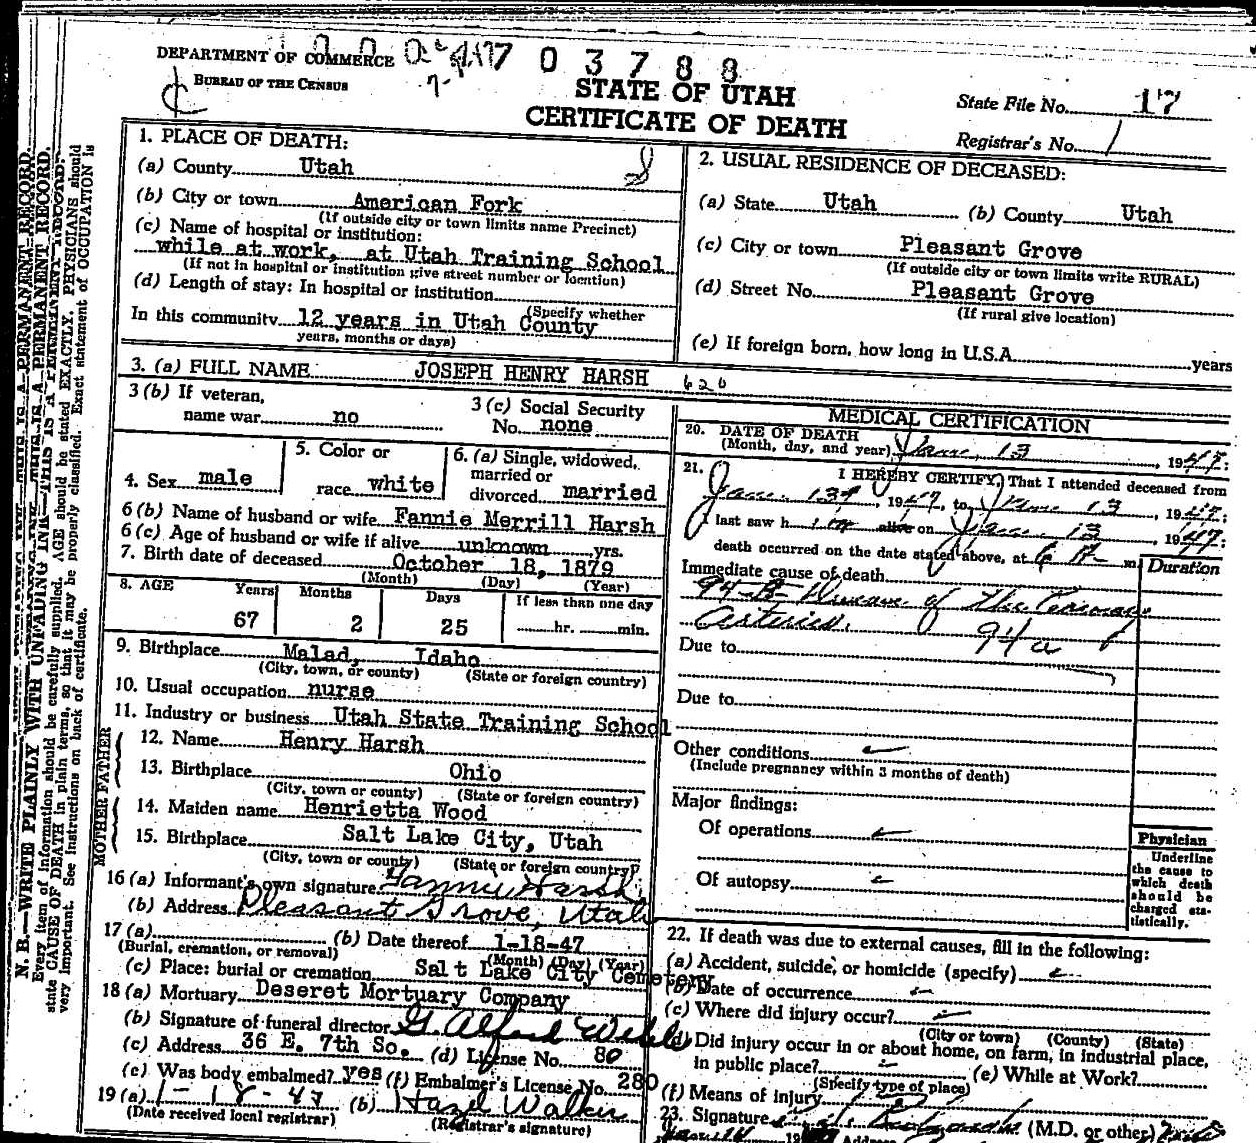 DEPARTMENT OF COMMERCE
BUREAU OF THE CENSUS
7 0 3 7 8 8
STATE OF UTAH
CERTIFICATE OF DEATH
State File No. 17
Registrar's No. 1
1. PLACE OF DEATH:
(a) County Utah
(b) City or town American Fork
(If outside city or town limits name Precinct)
(c) Name of hospital or institution:
while at work, at Utah Training School
(If not in hospital or institution give street number or location)
(d) Length of stay: In hospital or institution
(Specify whether
In this community 12 years in Utah County
years, months or days)
2. USUAL RESIDENCE OF DECEASED:
(a) State Utah (b) County Utah
(c) City or town Pleasant Grove
(If outside city or town limits write RURAL)
(d) Street No. Pleasant Grove
(If rural give location)
(e) If foreign born, how long in U.S.A. years
3. (a) FULL NAME JOSEPH HENRY HARSH 620
3 (b) If veteran,
name war no
3 (c) Social Security
No. none
4. Sex male
5. Color or
race white
6. (a) Single, widowed,
married or
divorced married
6 (b) Name of husband or wife Fannie Merrill Harsh
6 (c) Age of husband or wife if alive unknown yrs.
7. Birth date of deceased October 18, 1879
(Month) (Day) (Year)
8. AGE Years Months Days If less than one day
67 2 25 hr. min.
9. Birthplace Malad, Idaho
(City, town, or county) (State or foreign country)
10. Usual occupation nurse
11. Industry or business Utah State Training School
FATHER
12. Name Henry Harsh
13. Birthplace Ohio
(City, town or county) (State or foreign country)
MOTHER
14. Maiden name Henrietta Wood
15. Birthplace Salt Lake City, Utah
(City, town or county) (State or foreign country)
16 (a) Informant's own signature Fannie Harsh
(b) Address Pleasant Grove, Utah
17 (a) (b) Date thereof 1-18-47
(Burial, cremation, or removal) (Month) (Day) (Year)
(c) Place: burial or cremation Salt Lake City Cemetery
18 (a) Mortuary Deseret Mortuary Company
(b) Signature of funeral director G. Alford
(c) Address 36 E. 7th So. (d) License No. 80
(e) Was body embalmed? yes (f) Embalmer's License No. 280
19 (a) 1-18-47 (b) Hazel Walker
(Date received local registrar) (Registrar's signature)
MEDICAL CERTIFICATION
20. DATE OF DEATH
(Month, day, and year) Jan. 13, 1947:
21. I HEREBY CERTIFY, That I attended deceased from
Jan. 13, 1947, to Jan. 13, 1947:
I last saw him alive on Jan. 13, 1947:
death occurred on the date stated above, at 6 A m.
Immediate cause of death Duration
Disease of the Coronary
Arteries.
94a
Due to
Due to
Other conditions
(Include pregnancy within 3 months of death)
Major findings:
Of operations
Of autopsy
Physician
Underline
the cause to
which death
should be
charged sta-
tistically.
22. If death was due to external causes, fill in the following:
(a) Accident, suicide, or homicide (specify)
(b) Date of occurrence
(c) Where did injury occur?
(City or town) (County) (State)
(d) Did injury occur in or about home, on farm, in industrial place,
in public place? (e) While at Work?
(Specify type of place)
(f) Means of injury
23. Signature (M.D. or other)
Address
N. B.—WRITE PLAINLY WITH UNFADING INK—THIS IS A PERMANENT RECORD.
Every item of information should be carefully supplied. AGE should be stated EXACTLY. PHYSICIANS should
state CAUSE OF DEATH in plain terms, so that it may be properly classified. Exact statement of OCCUPATION is
very important. See instructions on back of certificate.